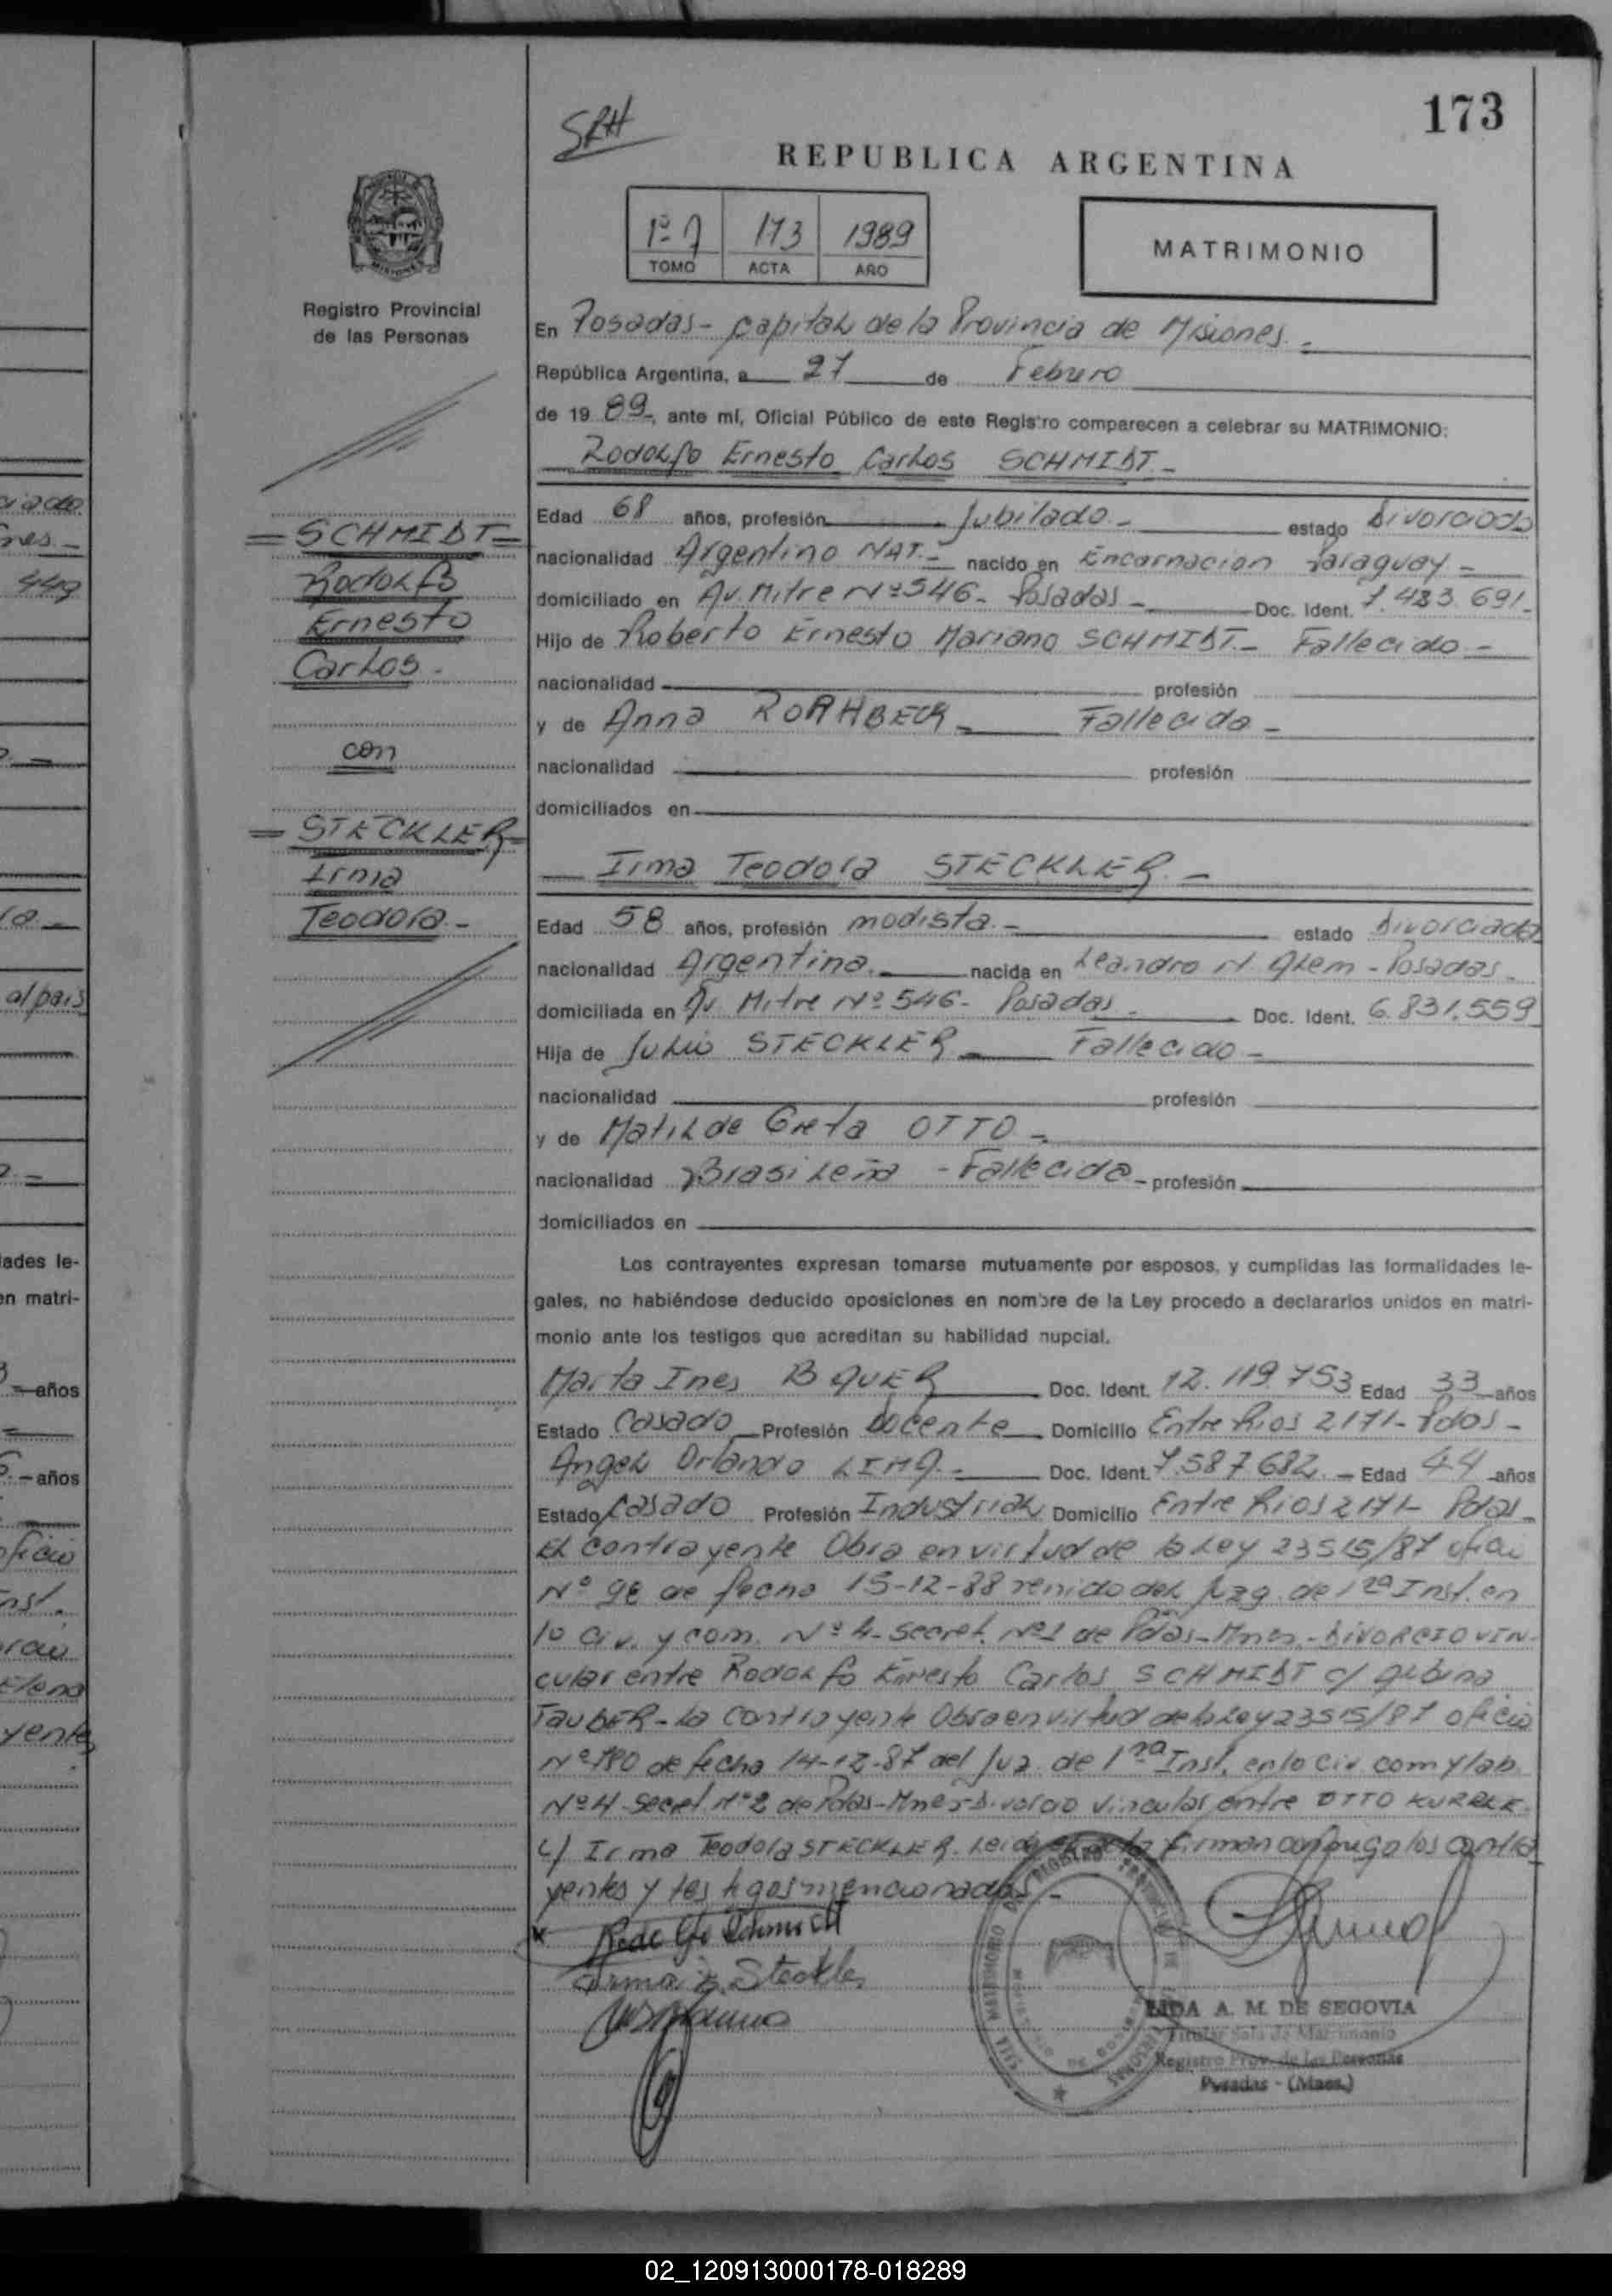 173
SRH
REPUBLICA ARGENTINA
1º A 173 1989
TOMO ACTA AÑO
MATRIMONIO
Registro Provincial
de las Personas
En Posadas - Capital de la Provincia de Misiones.-
República Argentina, a 27 de Febrero
de 19 89-, ante mí, Oficial Público de este Registro comparecen a celebrar su MATRIMONIO:
Rodolfo Ernesto Carlos SCHMIDT.-
Edad 68 años, profesión Jubilado.- estado Divorciado
nacionalidad Argentino NAT.- nacido en Encarnacion Paraguay -
domiciliado en Av. Mitre Nº 546- Posadas - Doc. Ident. 7.483.691-
Hijo de Roberto Ernesto Mariano SCHMIDT.- Fallecido -
nacionalidad profesión
y de Anna RORHBECK - Fallecida -
nacionalidad profesión
domiciliados en
= SCHMIDT =
Rodolfo
Ernesto
Carlos -
con
= STECKLER =
Irma
Teodora -
Irma Teodora STECKLER.-
Edad 58 años, profesión modista.- estado Divorciada
nacionalidad Argentina. nacida en Leandro N. Alem - Posadas.
domiciliada en Av. Mitre Nº 546- Posadas - Doc. Ident. 6.831.559
Hija de Julio STECKLER - Fallecido -
nacionalidad profesión
y de Matilde Greta OTTO -
nacionalidad Brasileña - Fallecida - profesión
domiciliados en
Los contrayentes expresan tomarse mutuamente por esposos, y cumplidas las formalidades le-
gales, no habiéndose deducido oposiciones en nombre de la Ley procedo a declararlos unidos en matri-
monio ante los testigos que acreditan su habilidad nupcial.
Marta Ines BAUER Doc. Ident. 12.119.753 Edad 33 años
Estado Casado Profesión Docente Domicilio Entre Rios 2171- Pdas -
Angel Orlando LIMA.- Doc. Ident. 7.587.682.- Edad 44 años
Estado Casado Profesión Industrial Domicilio Entre Rios 2171- Pdas -
El contrayente Obra en virtud de la Ley 23515/87 oficio
Nº 98 de fecha 15-12-88 venido del Juzg. de 1ra Inst. en
lo Civ. y com. Nº 4- Secret. Nº 1 de Pdas-Mnes- DIVORCIO VIN-
cular entre Rodolfo Ernesto Carlos SCHMIDT c/ Albina
TAUBER - La contrayente Obra en virtud de la Ley 23515/87 oficio
Nº 780 de fecha 14-12-87 del Juz. de 1ra Inst. en lo Civ. com y lab.
Nº 4- Secret. Nº 2 de Pdas-Mnes Divorcio Vincular entre OTTO KURRLE
c/ Irma Teodora STECKLER. Leida el acta firman conmigo los contra
yentes y testigos mencionados -
Rodolfo Schmidt
Irma Steckler
LIDA A. M. DE SEGOVIA
Titular Sala de Matrimonio
Registro Prov. de las Personas
Posadas - (Mnes.)
ciado
nes -
449
ra -
al pais
dades le-
en matri-
años
años
oficio
nst.
Elena
yentes
02_120913000178-018289